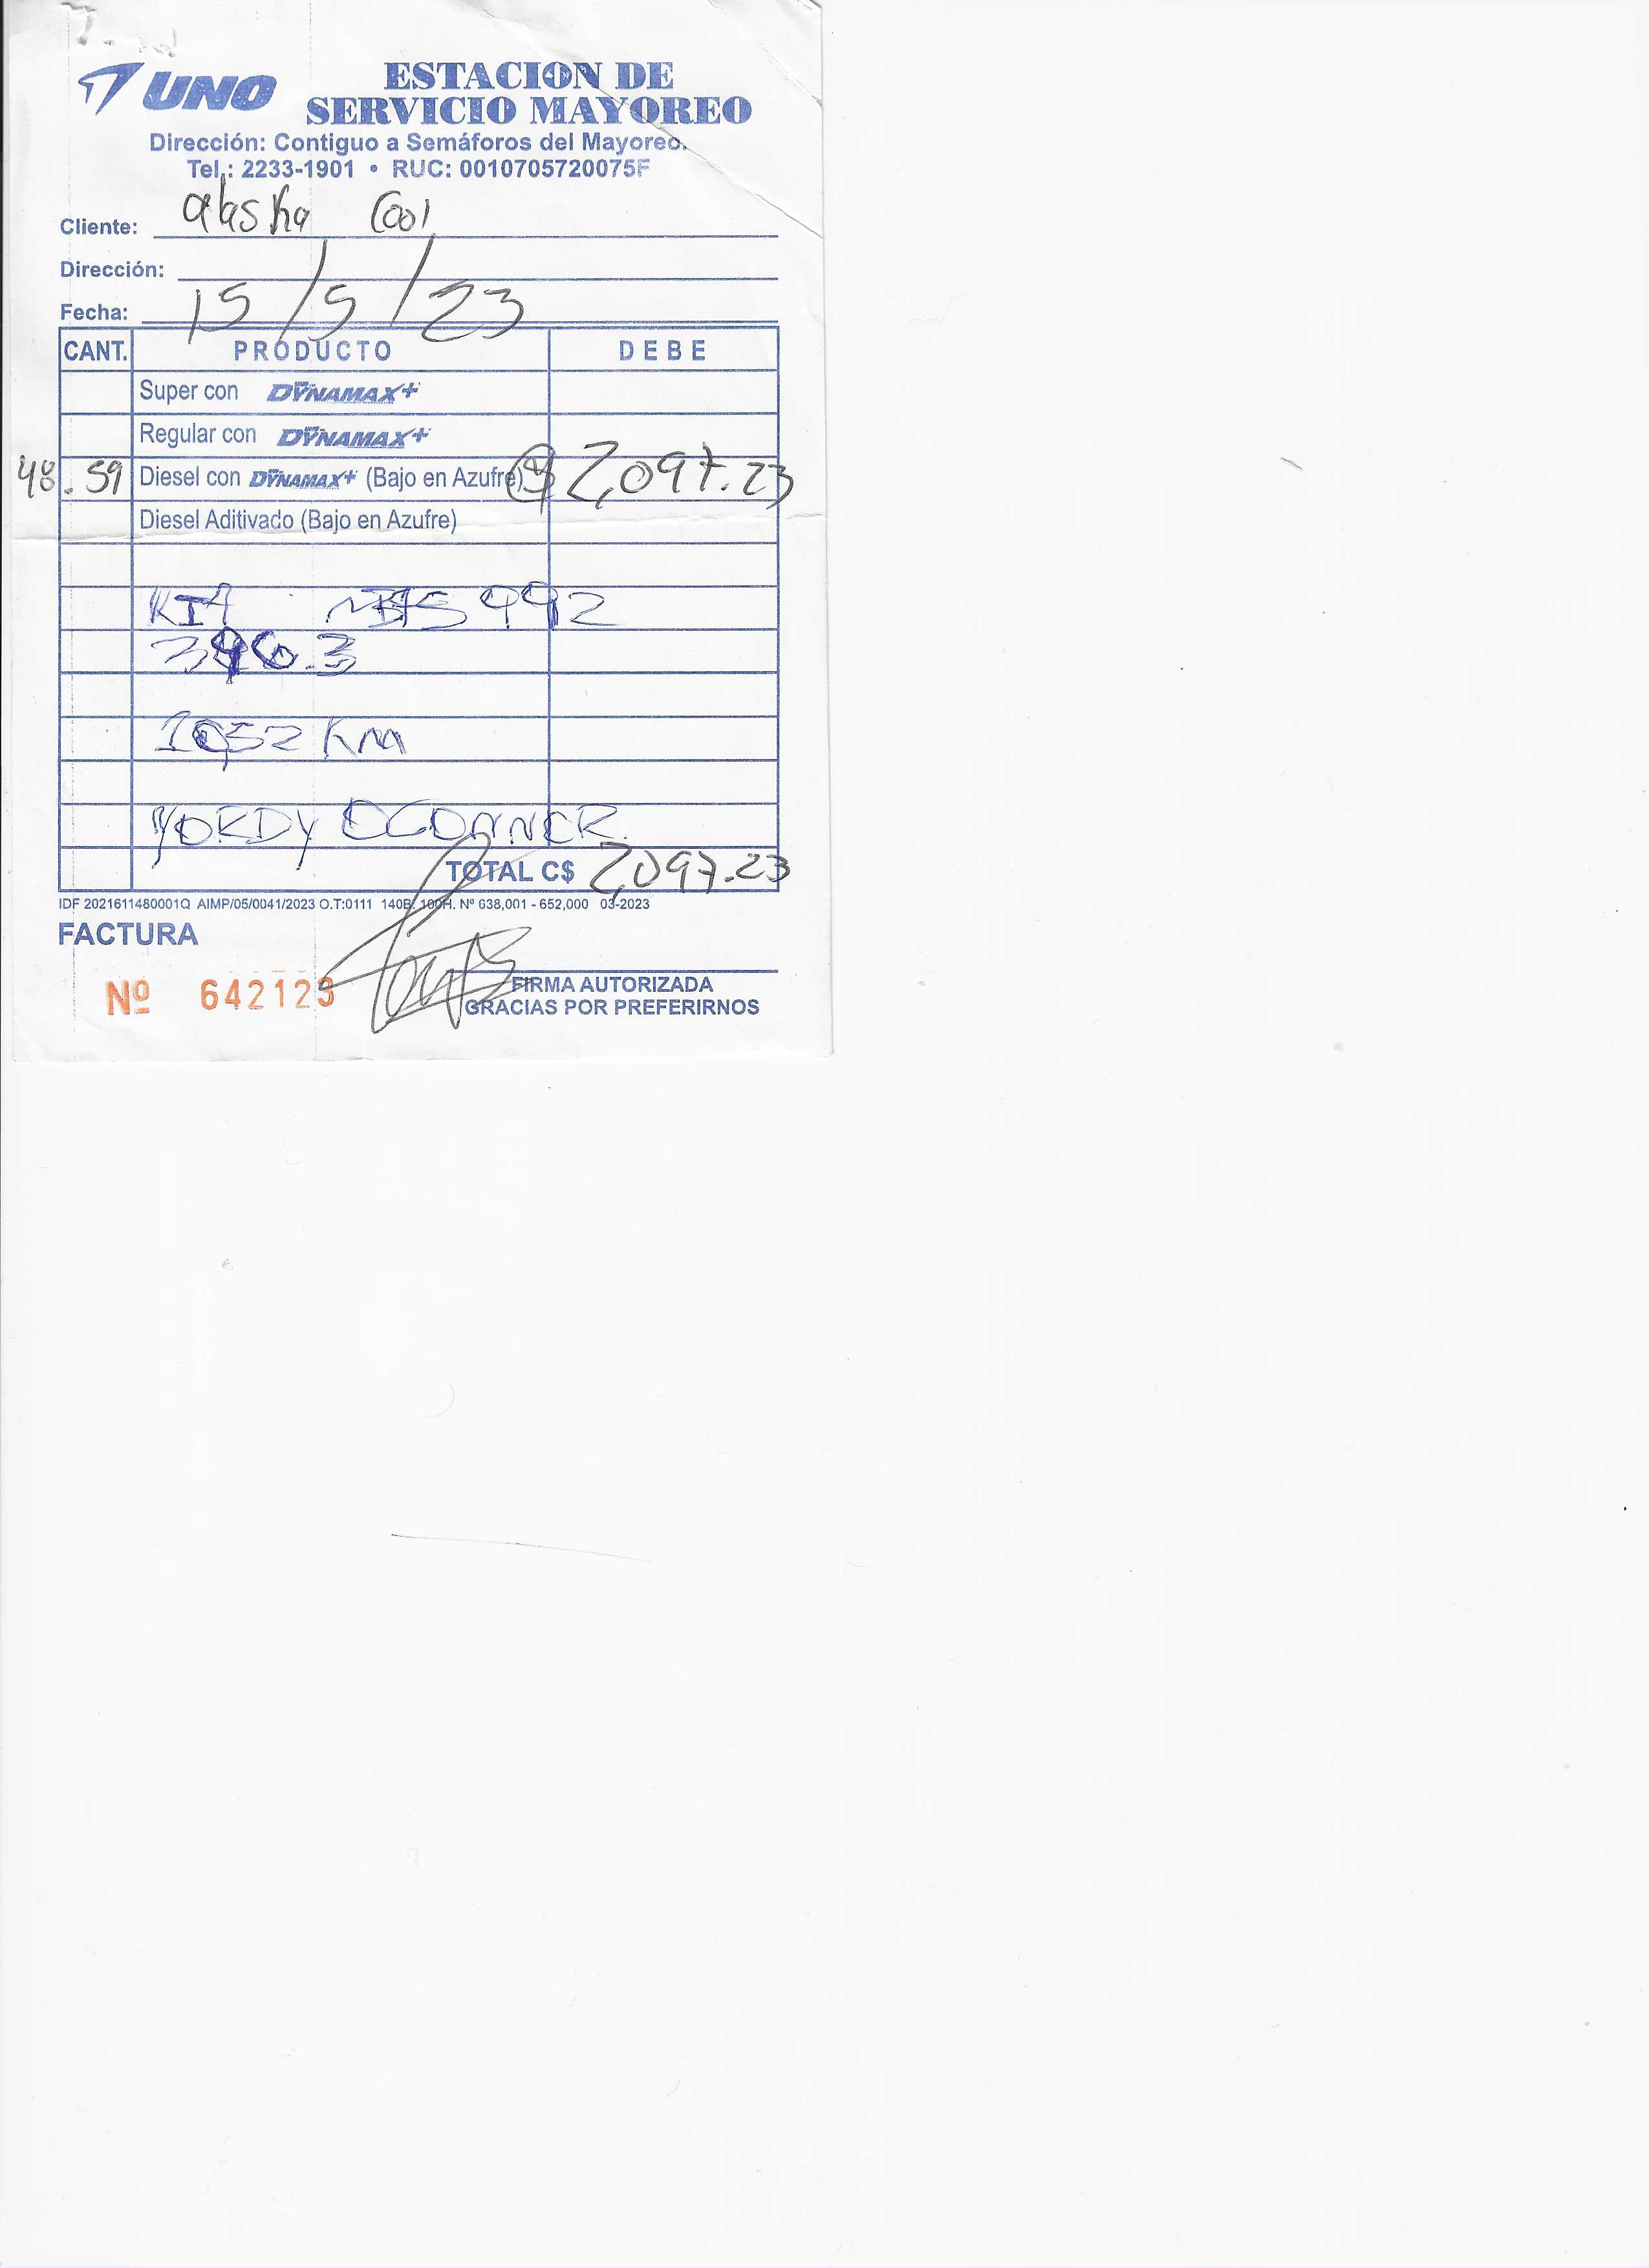 UNO
ESTACION DE
SERVICIO MAYOREO
Dirección: Contiguo a Semáforos del Mayoreo.
Tel.: 2233-1901 • RUC: 0010705720075F
Cliente: alaska Cool
Dirección:
Fecha: 15/5/23
CANT. PRODUCTO DEBE
Super con DYNAMAX+
Regular con DYNAMAX+
48.59 Diesel con DYNAMAX+ (Bajo en Azufre) 2,097.23
Diesel Aditivado (Bajo en Azufre)
KIA
1052 Km
YORDY OCONNOR.
TOTAL C$ 2,097.23
IDF 2021611480001Q AIMP/05/0041/2023 O.T:0111 140B. 100H. Nº 638,001 - 652,000 03-2023
FACTURA
Nº 642123
FIRMA AUTORIZADA
GRACIAS POR PREFERIRNOS